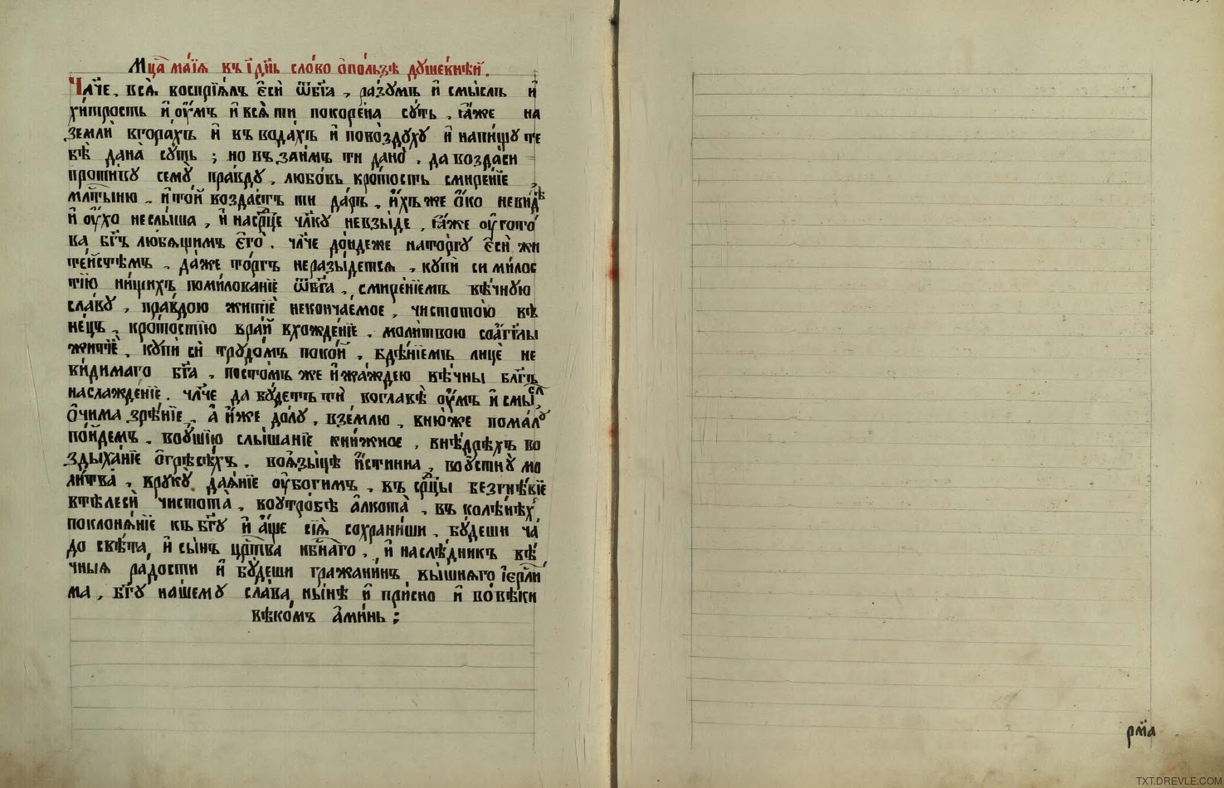 Мц҃а маі́ѧ въ і҃ дн҃ь сло́во ѡ҆по́льзѣ дꙋше́внѣй .
Чл҃че , всѧ̀ воспрїѧ́лъ є҆сѝ ѿбг҃а , ра́зꙋмъ и҆ смы́слъ и҆
хи́трость и҆ ѹ҆́мъ и҆ всѧ̀ ти покоре́на сꙋ́ть , ꙗ҆́же на
землѝ вгора́хъ и҆ въ вода́хъ и҆ повозды́хꙋ и҆ напи́щꙋ те
бѣ̀ дана̀ сꙋ́ть ; но въ за́имъ ти дано̀ , да возда́си
проти́вꙋ семꙋ̀ пра́вдꙋ , любо́вь кро́тость смире́нїе
млⷭ҇тыню . и҆ то́й возда́стъ ти да́ръ , и҆́хъ же ѻ҆́ко неви́дѣ
и҆ ѹ҆́хо неслы́ша , и҆ насрⷣце чл҃кꙋ невзы́де , ꙗ҆́же ѹ҆гото́
ва бг҃ъ лю́бѧщимъ є҆го̀ . чл҃че до́ндеже нато́ргꙋ є҆сѝ жи
те́йстѣмъ , да́же то́ргъ неразы́детсѧ , кꙋпѝ си ми́лос
тїю ни́щихъ поми́лованїе ѿбг҃а , смире́нїемъ вѣ́чнꙋю
сла́вꙋ , пра́вдою житїѐ некончае́мое , чистото́ю вѣ
не́цъ , кро́тостїю вра́й вхожде́нїе , моли́твою соа́гг҃лы
житїѐ , кꙋпѝ сѝ трꙋдо́мъ поко́й , бдѣ́нїемъ лицѐ не
ви́димаго бг҃а , посто́мъ же и҆ жа́ждею вѣ́чны бл҃гъ
наслажде́нїе . чл҃че да бꙋ́детъ ти̏ воглавѣ̀ ѹ҆́мъ и҆ смы́сл
ѻ҆чи́ма зрѣ́нїе , а҆ и҆́же до́лꙋ , взе́млю , вню́же пома́лꙋ
по́йдемъ , воꙋшїю слы́шанїе кни́жное , внѣ́дрѣхъ во
здыха́нїе ѡ҆грѣсѣ́хъ . воѧзы́цѣ и҆́стинна , воꙋстнꙋ̀ мо
ли́тва , врꙋкꙋ̀ даѧ́нїе ѹ҆бо́гимъ , въ срⷣцы безгнѣ́вїе
втѣлесѝ чистота̀ , воꙋтро́бѣ а҆лкота̀ , въ колѣ́нѣхъ
поклонѧ́нїе къ бг҃ꙋ и҆ а҆́ще сїѧ̀ сохрани́ши , бꙋ́деши ча́
до свѣ́та , и҆ сы́нъ црⷭ҇тва нбⷭ҇наго , и҆ наслѣ́дникъ вѣ́
чныѧ ра́дости и҆ бꙋ́деши граждани́нъ вы́шнѧго і҆ерⷭ҇ли́
ма , бг҃ꙋ на́шемꙋ сла́ва ны́нѣ и҆ при́сно и҆ во вѣ́ки
вѣко́мъ а҆ми́нь ;
рм҃а
TXT.DREVLE.COM